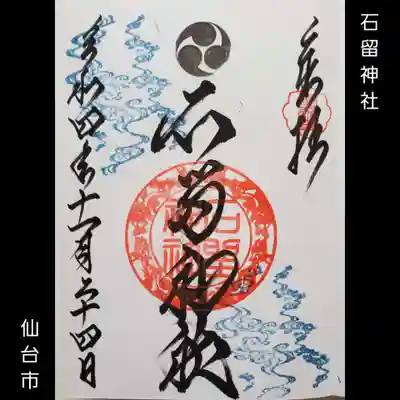 石留神社
奉拝
石留神社
令和四年十一月二十四日
仙台市